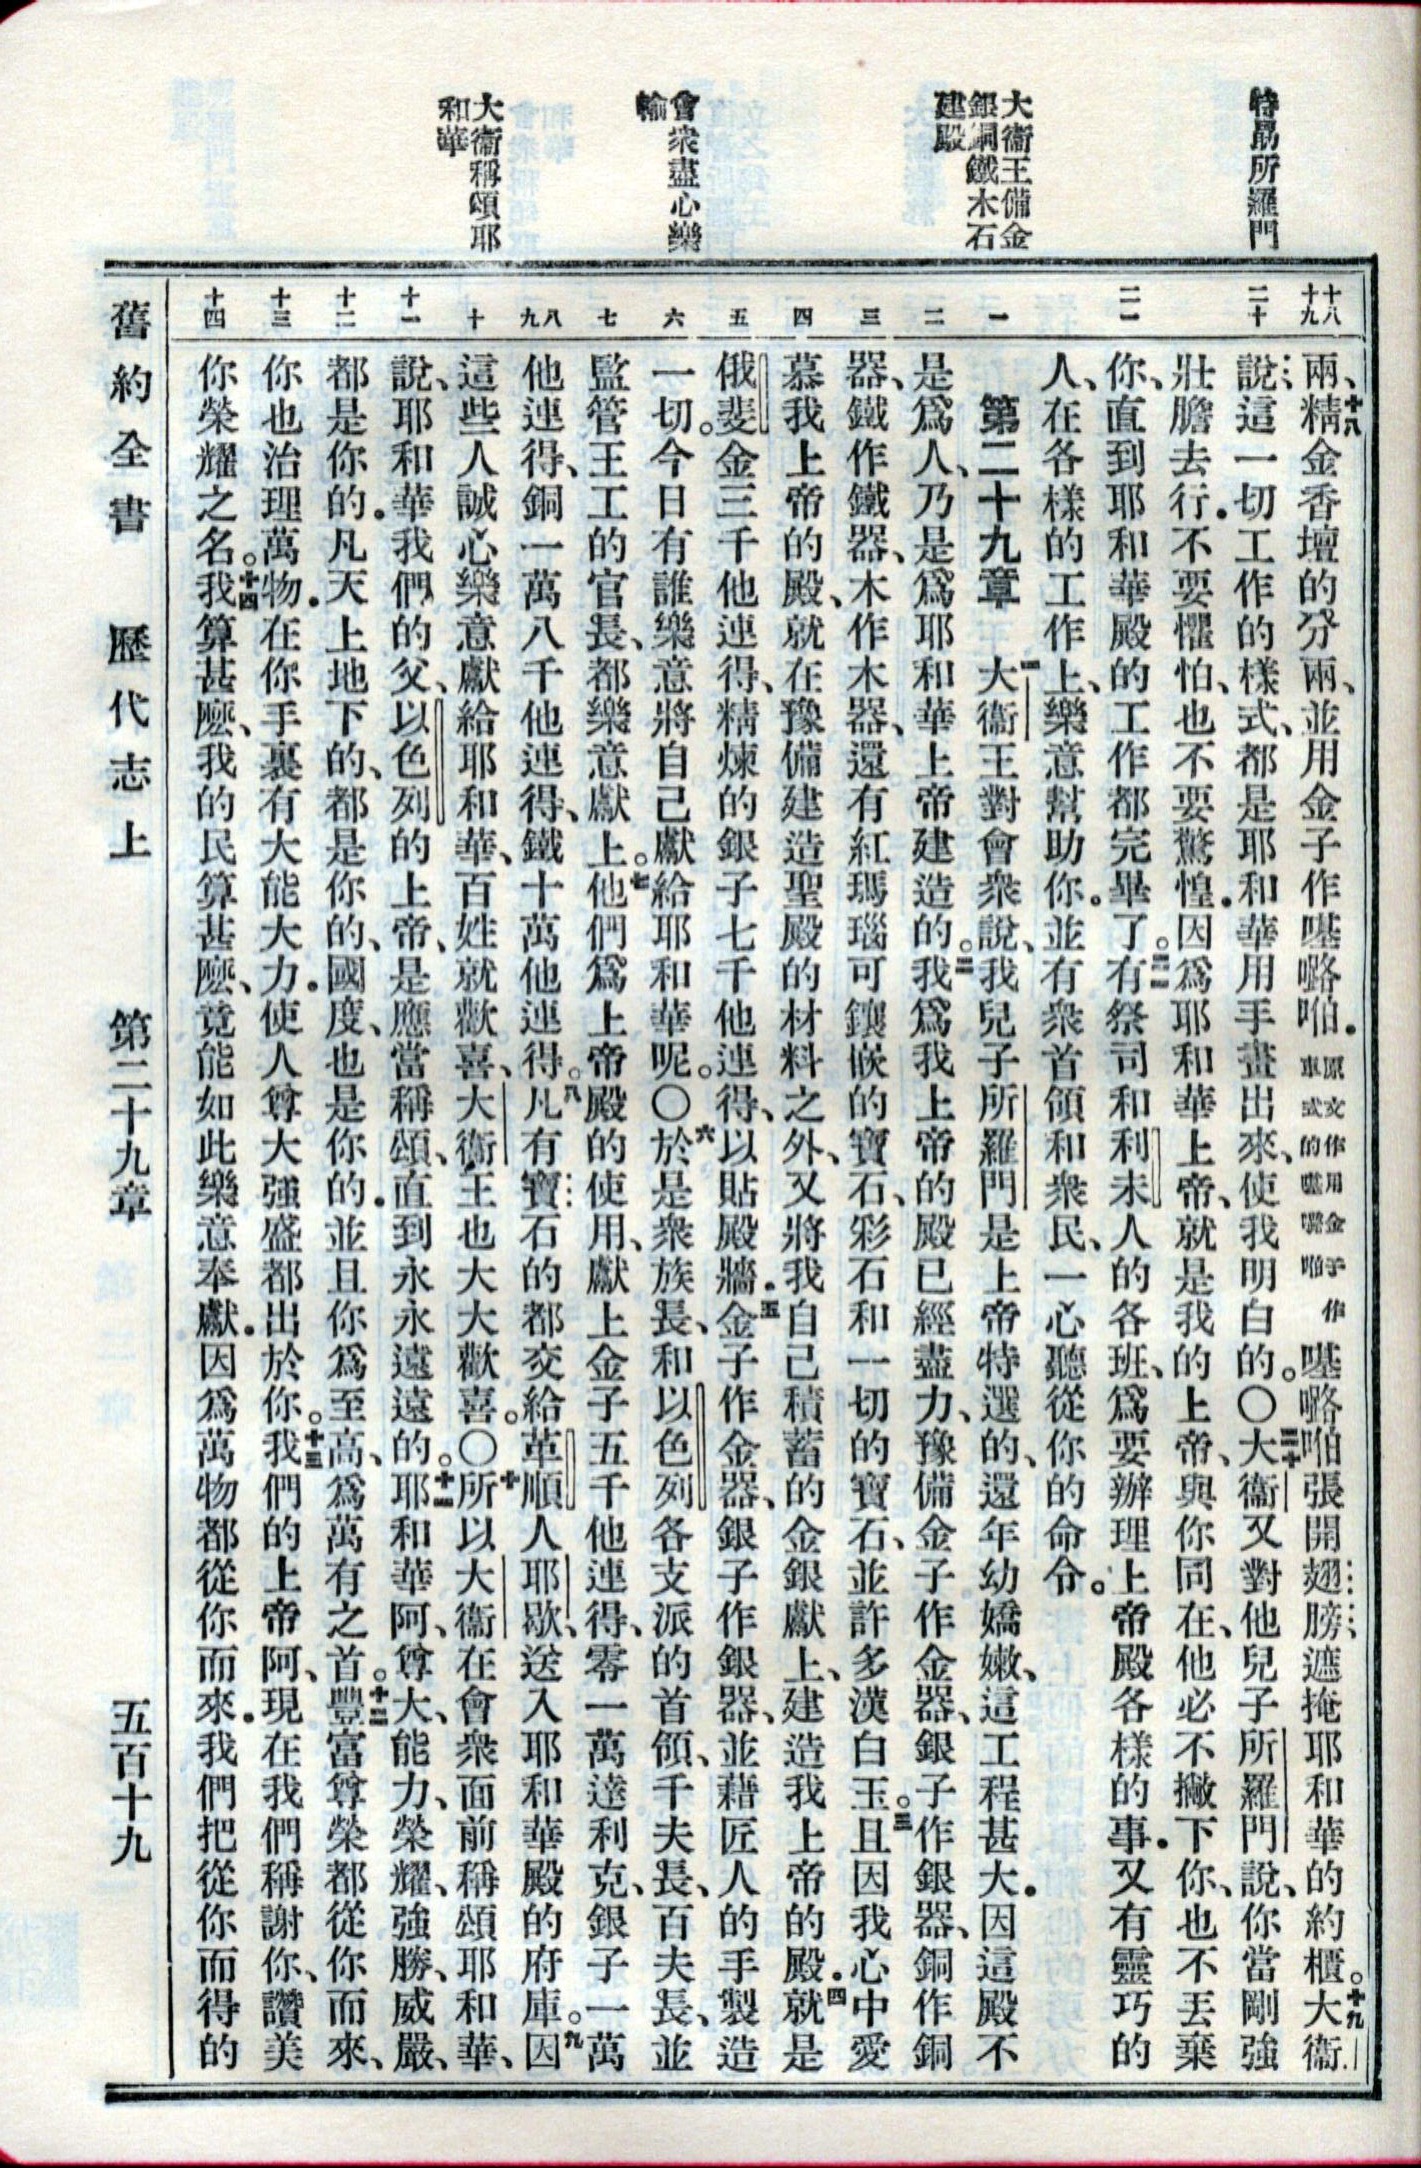 特勗所羅門
大衞王備金
銀銅鐵木石
建殿
會衆盡心樂
輸
大衞稱頌耶
和華
十八
十九
二十
二一
一
二
三
四
五
六
七
八
九
十
十一
十二
十三
十四
兩、十八精金香壇的分兩、並用金子作𠼻嚕咟．原文作用金子作車式的𠼻嚕咟𠼻嚕咟張開翅膀遮掩耶和華的約櫃。十九大衞
說、這一切工作的樣式、都是耶和華用手畫出來、使我明白的。〇二十大衞又對他兒子所羅門說、你當剛強
壯膽去行．不要懼怕、也不要驚惶．因爲耶和華上帝、就是我的上帝、與你同在、他必不撇下你、也不丟棄
你、直到耶和華殿的工作都完畢了。二一有祭司和利未人的各班、爲要辦理上帝殿各樣的事．又有靈巧的
人、在各樣的工作上、樂意幫助你。並有衆首領和衆民、一心聽從你的命令。
第二十九章 一大衞王對會衆說、我兒子所羅門是上帝特選的、還年幼嬌嫩、這工程甚大．因這殿不
是爲人、乃是爲耶和華上帝建造的。二我爲我上帝的殿已經盡力、豫備金子作金器、銀子作銀器、銅作銅
器、鐵作鐵器、木作木器、還有紅瑪瑙可鑲嵌的寶石、彩石和一切的寶石、並許多漢白玉。三且因我心中愛
慕我上帝的殿、就在豫備建造聖殿的材料之外、又將我自己積蓄的金銀獻上、建造我上帝的殿．四就是
俄斐金三千他連得、精煉的銀子七千他連得、以貼殿牆．五金子作金器、銀子作銀器、並藉匠人的手製造
一切。今日有誰樂意將自己獻給耶和華呢。〇六於是衆族長、和以色列各支派的首領、千夫長、百夫長、並
監管王工的官長、都樂意獻上。七他們爲上帝殿的使用、獻上金子五千他連得、零一萬達利克、銀子一萬
他連得、銅一萬八千他連得、鐵十萬他連得。八凡有寶石的都交給革順人耶歇、送入耶和華殿的府庫。九因
這些人誠心樂意獻給耶和華、百姓就歡喜、大衞王也大大歡喜。〇十所以大衞在會衆面前稱頌耶和華、
說、耶和華我們的父、以色列的上帝、是應當稱頌、直到永永遠遠的。十一耶和華阿、尊大、能力、榮耀、強勝、威嚴、
都是你的．凡天上地下的、都是你的、國度、也是你的．並且你爲至高、爲萬有之首。十二豐富尊榮都從你而來、
你也治理萬物．在你手裏有大能大力．使人尊大強盛都出於你。十三我們的上帝阿、現在我們稱謝你、讚美
你榮耀之名。十四我算甚麽、我的民算甚麽、竟能如此樂意奉獻．因爲萬物都從你而來．我們把從你而得的
舊約全書 歷代志上 第二十九章 五百十九